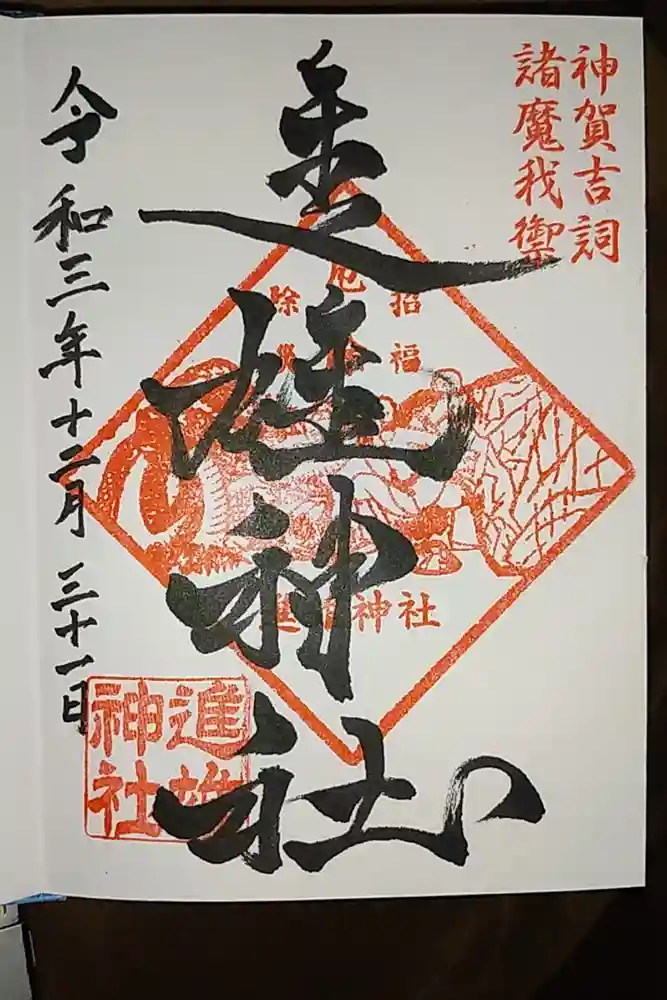 神賀吉詞
諸魔我禦
招福
厄
除災
進雄神社
進雄神社
進雄神社
令和三年十二月三十一日